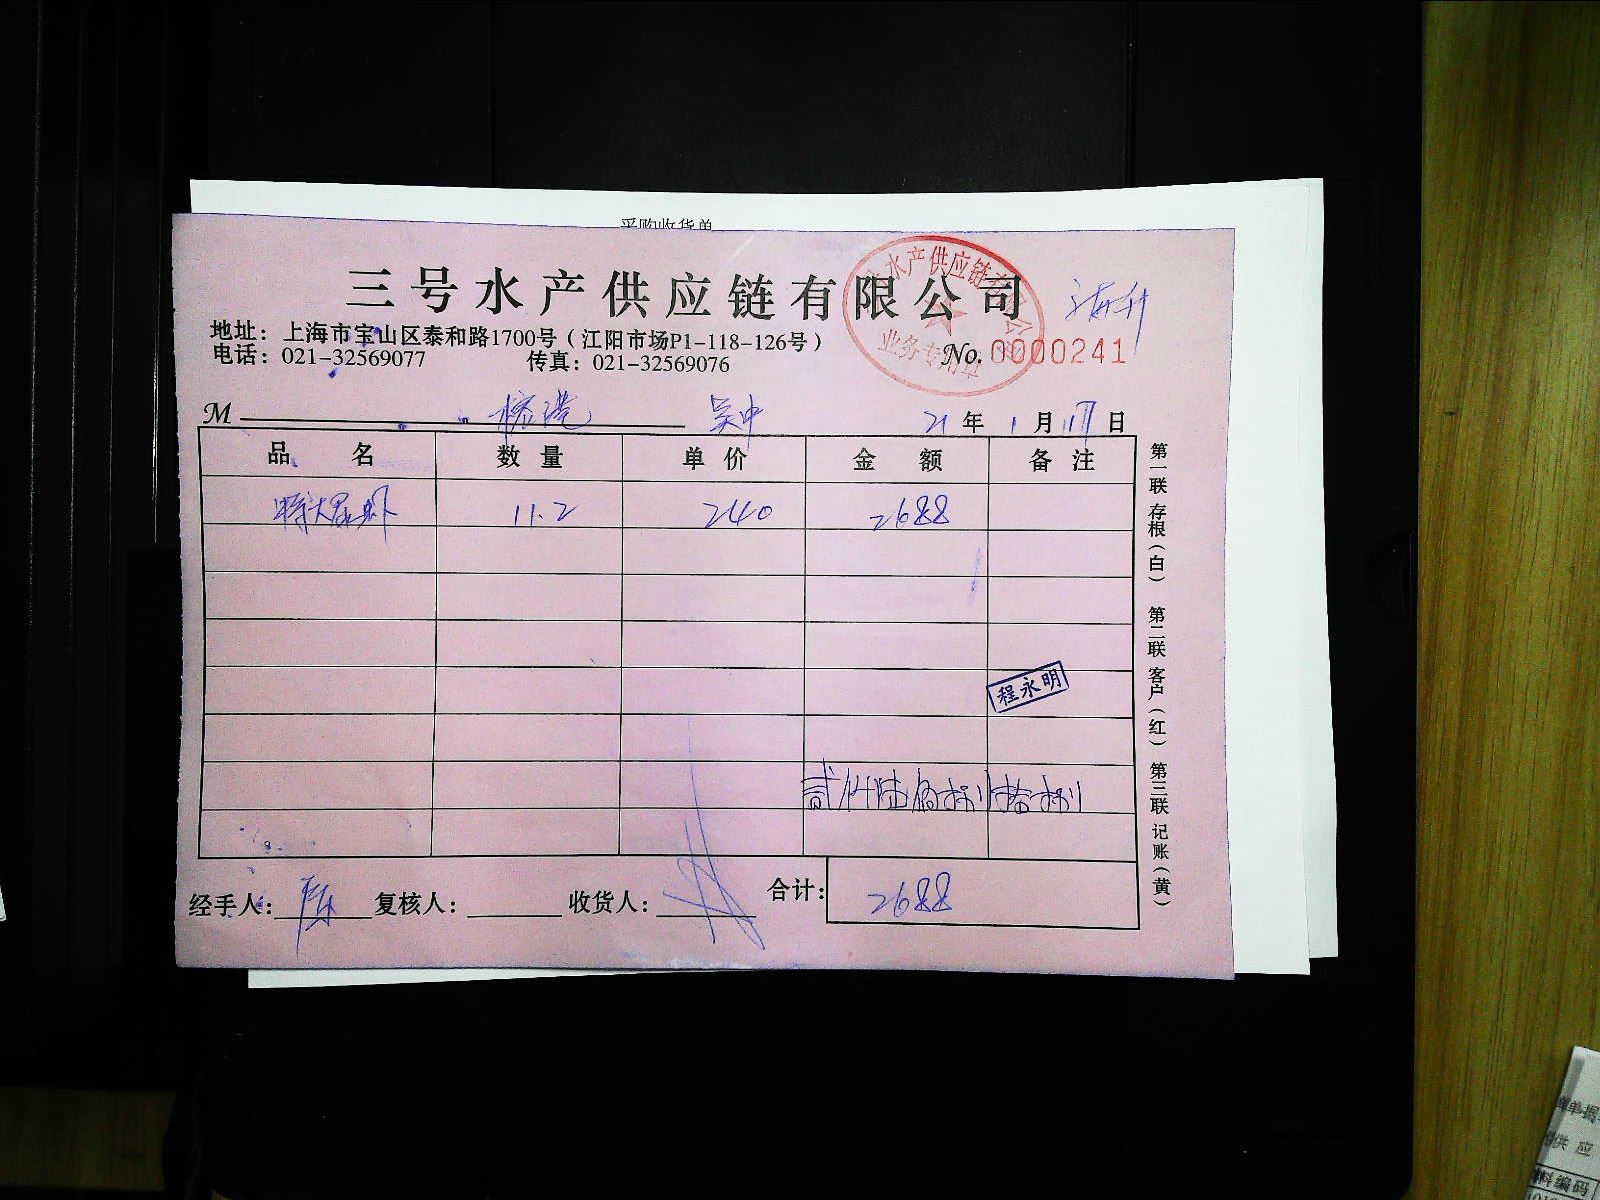 采购收货单
三号水产供应链有限公司
水产供应链有限公司
业务专用章
地址：上海市宝山区泰和路1700号（江阳市场P1-118-126号）
No. 0000241
电话：021-32569077 传真：021-32569076
M 榕港 吴中 21年1月17日
品名 数量 单价 金额 备注
特大昆虾 11.2 240 2688
程永明
贰仟陆佰捌拾捌
经手人：陈 复核人： 收货人： 合计：2688
第一联 存根（白） 第二联 客户（红） 第三联 记账（黄）
单据
供 应
料编码